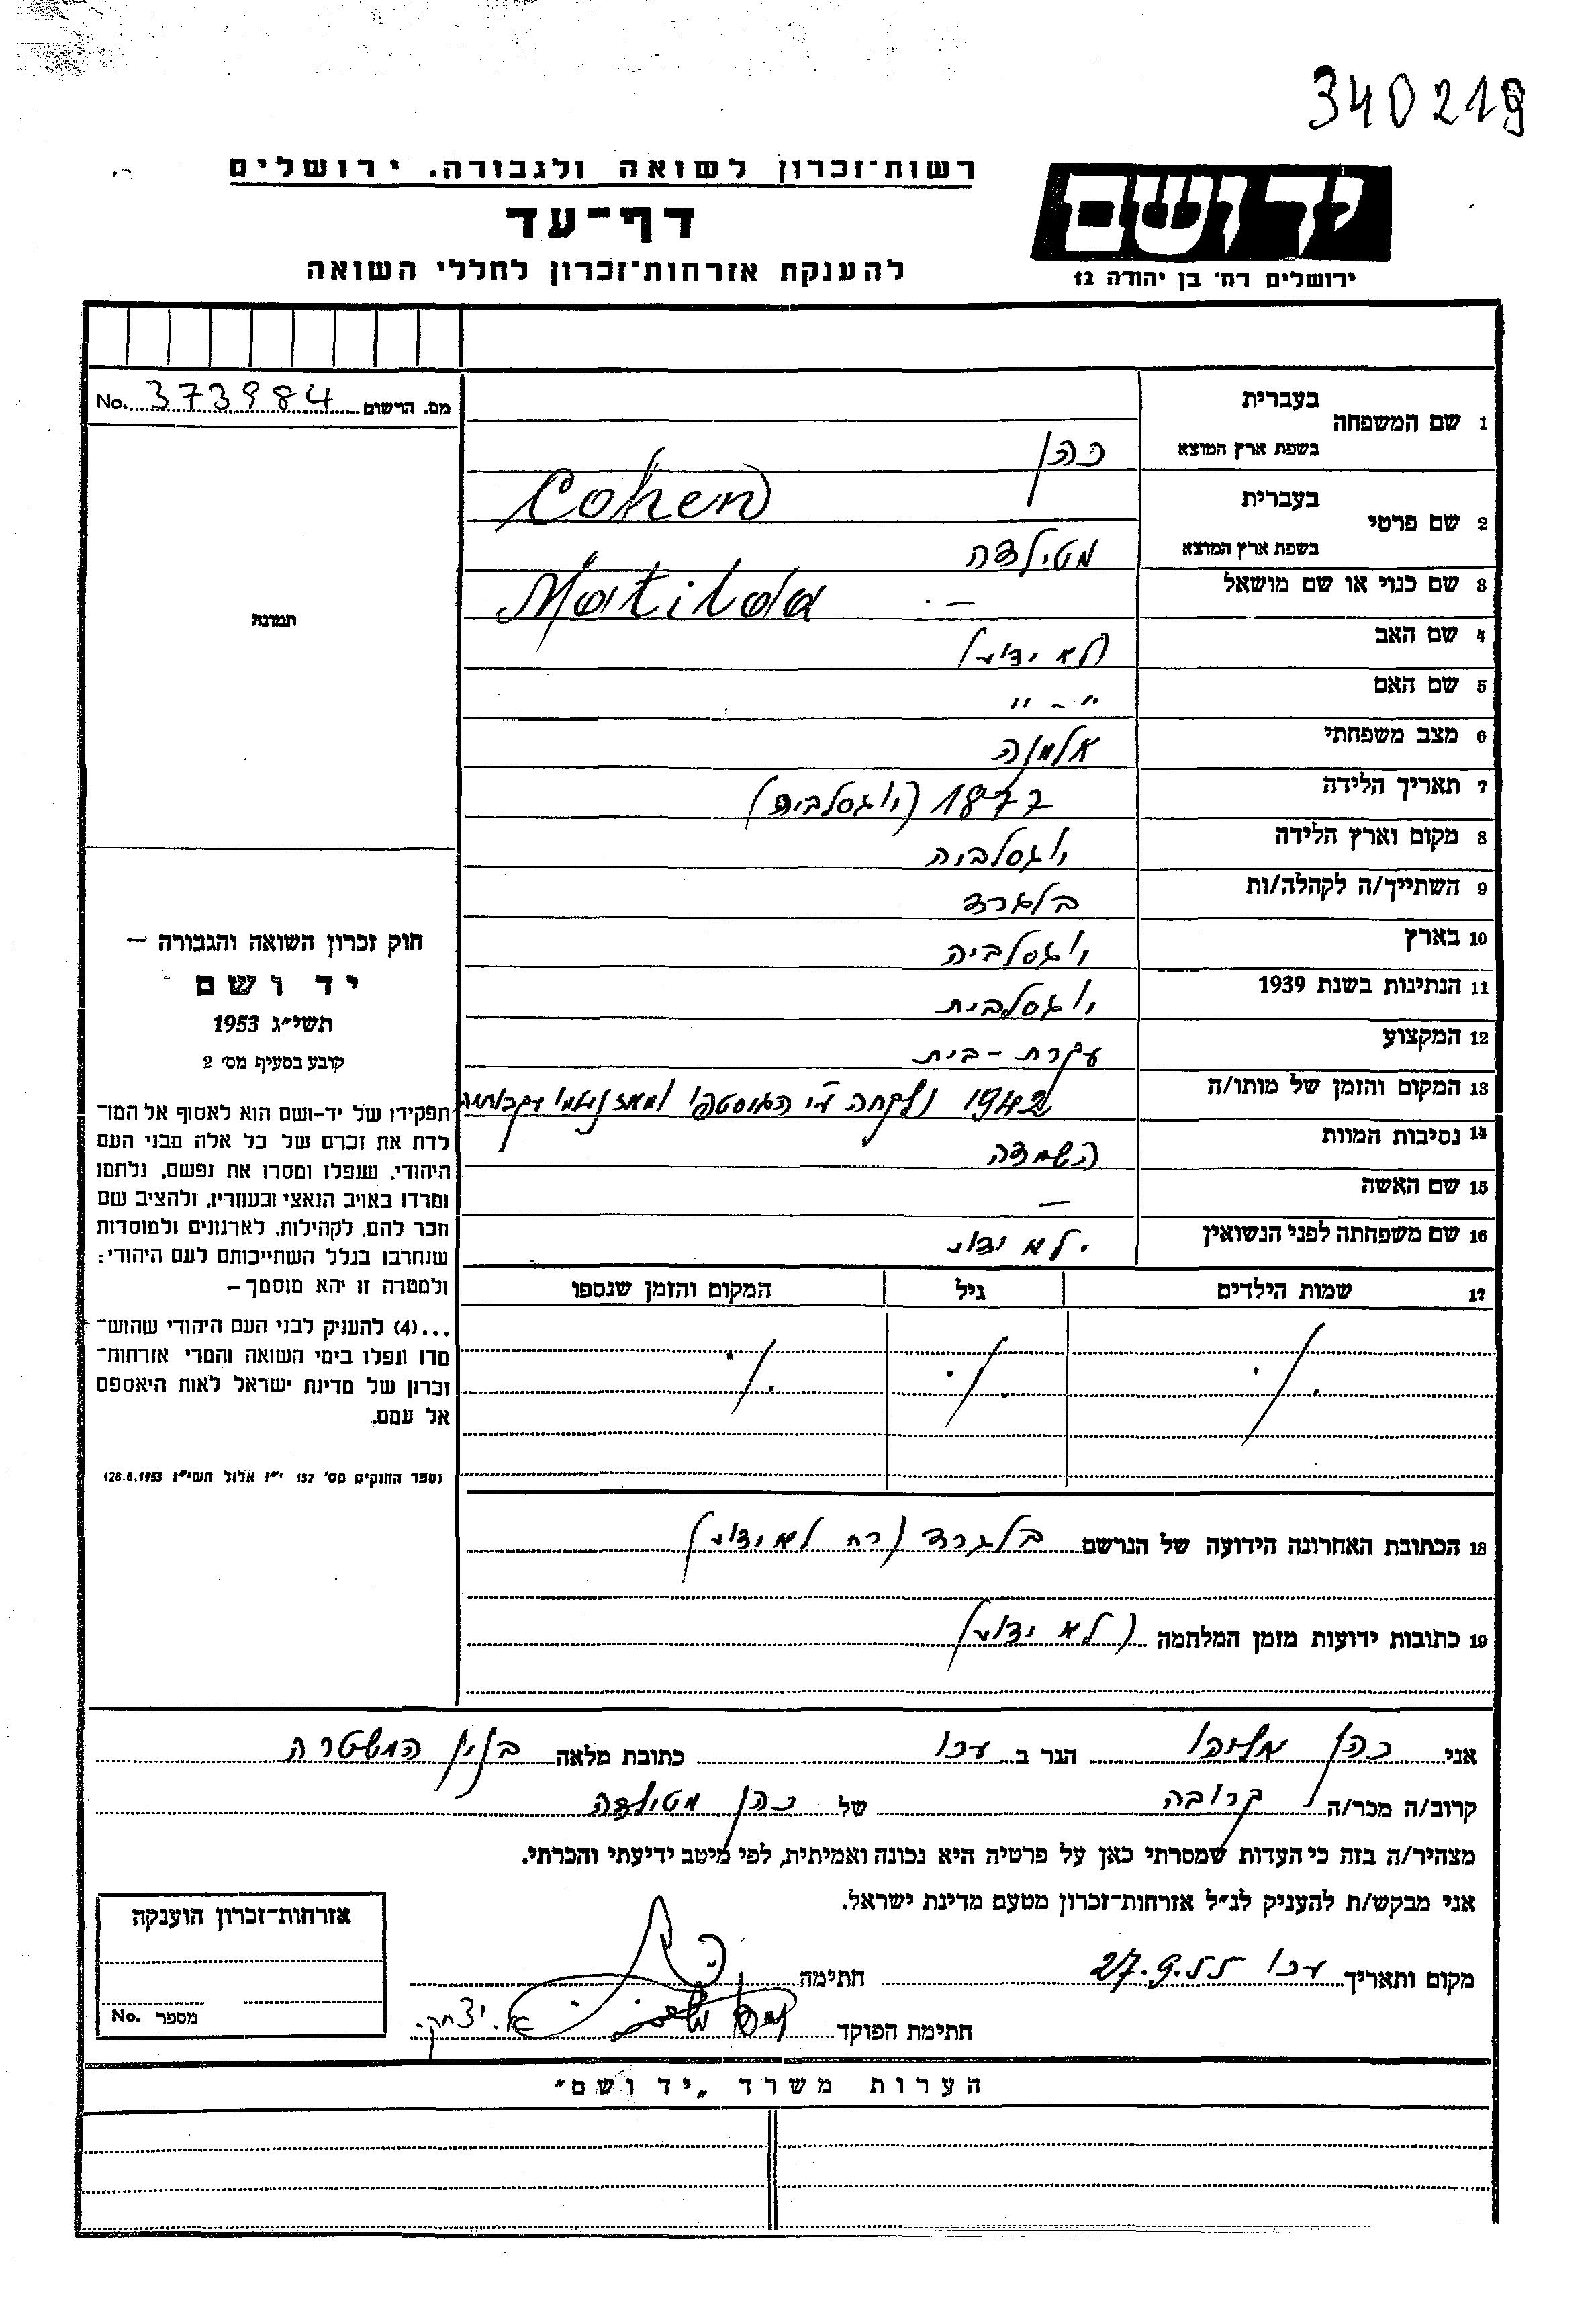 340219
רשות־זכרון לשואה ולגבורה. ירושלים
דף־עד
להענקת אזרחות־זכרון לחללי השואה
יד ושם
ירושלים רח׳ בן יהודה 12
מס. הרשום 373984 No.
1 שם המשפחה בעברית
בשפת ארץ המוצא כהן
Cohen
2 שם פרטי בעברית
בשפת ארץ המוצא מטילדה
Matilda
3 שם כנוי או שם מושאל —
4 שם האב (לא ידוע)
5 שם האם ״ - ״
6 מצב משפחתי אלמנה
7 תאריך הלידה 1877 (יוגסלביה)
8 מקום וארץ הלידה יוגסלביה
9 השתייך/ה לקהלה/ות בלגרד
10 בארץ יוגסלביה
11 הנתינות בשנת 1939 יוגסלבית
12 המקצוע עקרת - בית
13 המקום והזמן של מותו/ה 1942 נלקחה ע״י הגיסטפו ומאז נעלמו עקבותיה
14 נסיבות המוות השמדה
15 שם האשה —
16 שם משפחתה לפני הנשואין לא ידוע
17 שמות הילדים גיל המקום והזמן שנספו
תמונה
חוק זכרון השואה והגבורה —
יד ושם
תשי״ג 1953
קובע בסעיף מס׳ 2
תפקידו של יד-ושם הוא לאסוף אל המו־
לדת את זכרם של כל אלה מבני העם
היהודי, שנפלו ומסרו את נפשם, נלחמו
ומרדו באויב הנאצי ובעוזריו, ולהציב שם
וזכר להם, לקהילות, לארגונים ולמוסדות
שנחרבו בגלל השתייכותם לעם היהודי;
ולמטרה זו יהא מוסמך —
...(4) להעניק לבני העם היהודי שהוש־
מדו ונפלו בימי השואה והמרי אזרחות־
זכרון של מדינת ישראל לאות היאספם
אל עמם.
(ספר החוקים מס׳ 132 י״ז אלול תשי״ג 28.8.1953)
18 הכתובת האחרונה הידועה של הנרשם בלגרד (רח לא ידוע)
19 כתובות ידועות מזמן המלחמה (לא ידוע)
אני כהן הגר ב עכו כתובת מלאה בנין המשטרה
קרוב/ה מכר/ה קרובה של כהן מטילדה
מצהיר/ה בזה כי העדות שמסרתי כאן על פרטיה היא נכונה ואמיתית, לפי מיטב ידיעתי והכרתי.
אני מבקש/ת להעניק לנ״ל אזרחות־זכרון מטעם מדינת ישראל.
מקום ותאריך עכו 27.9.55 חתימה
חתימת הפוקד א. יצחק.
אזרחות־זכרון הוענקה
מספר No.
הערות משרד „יד ושם״